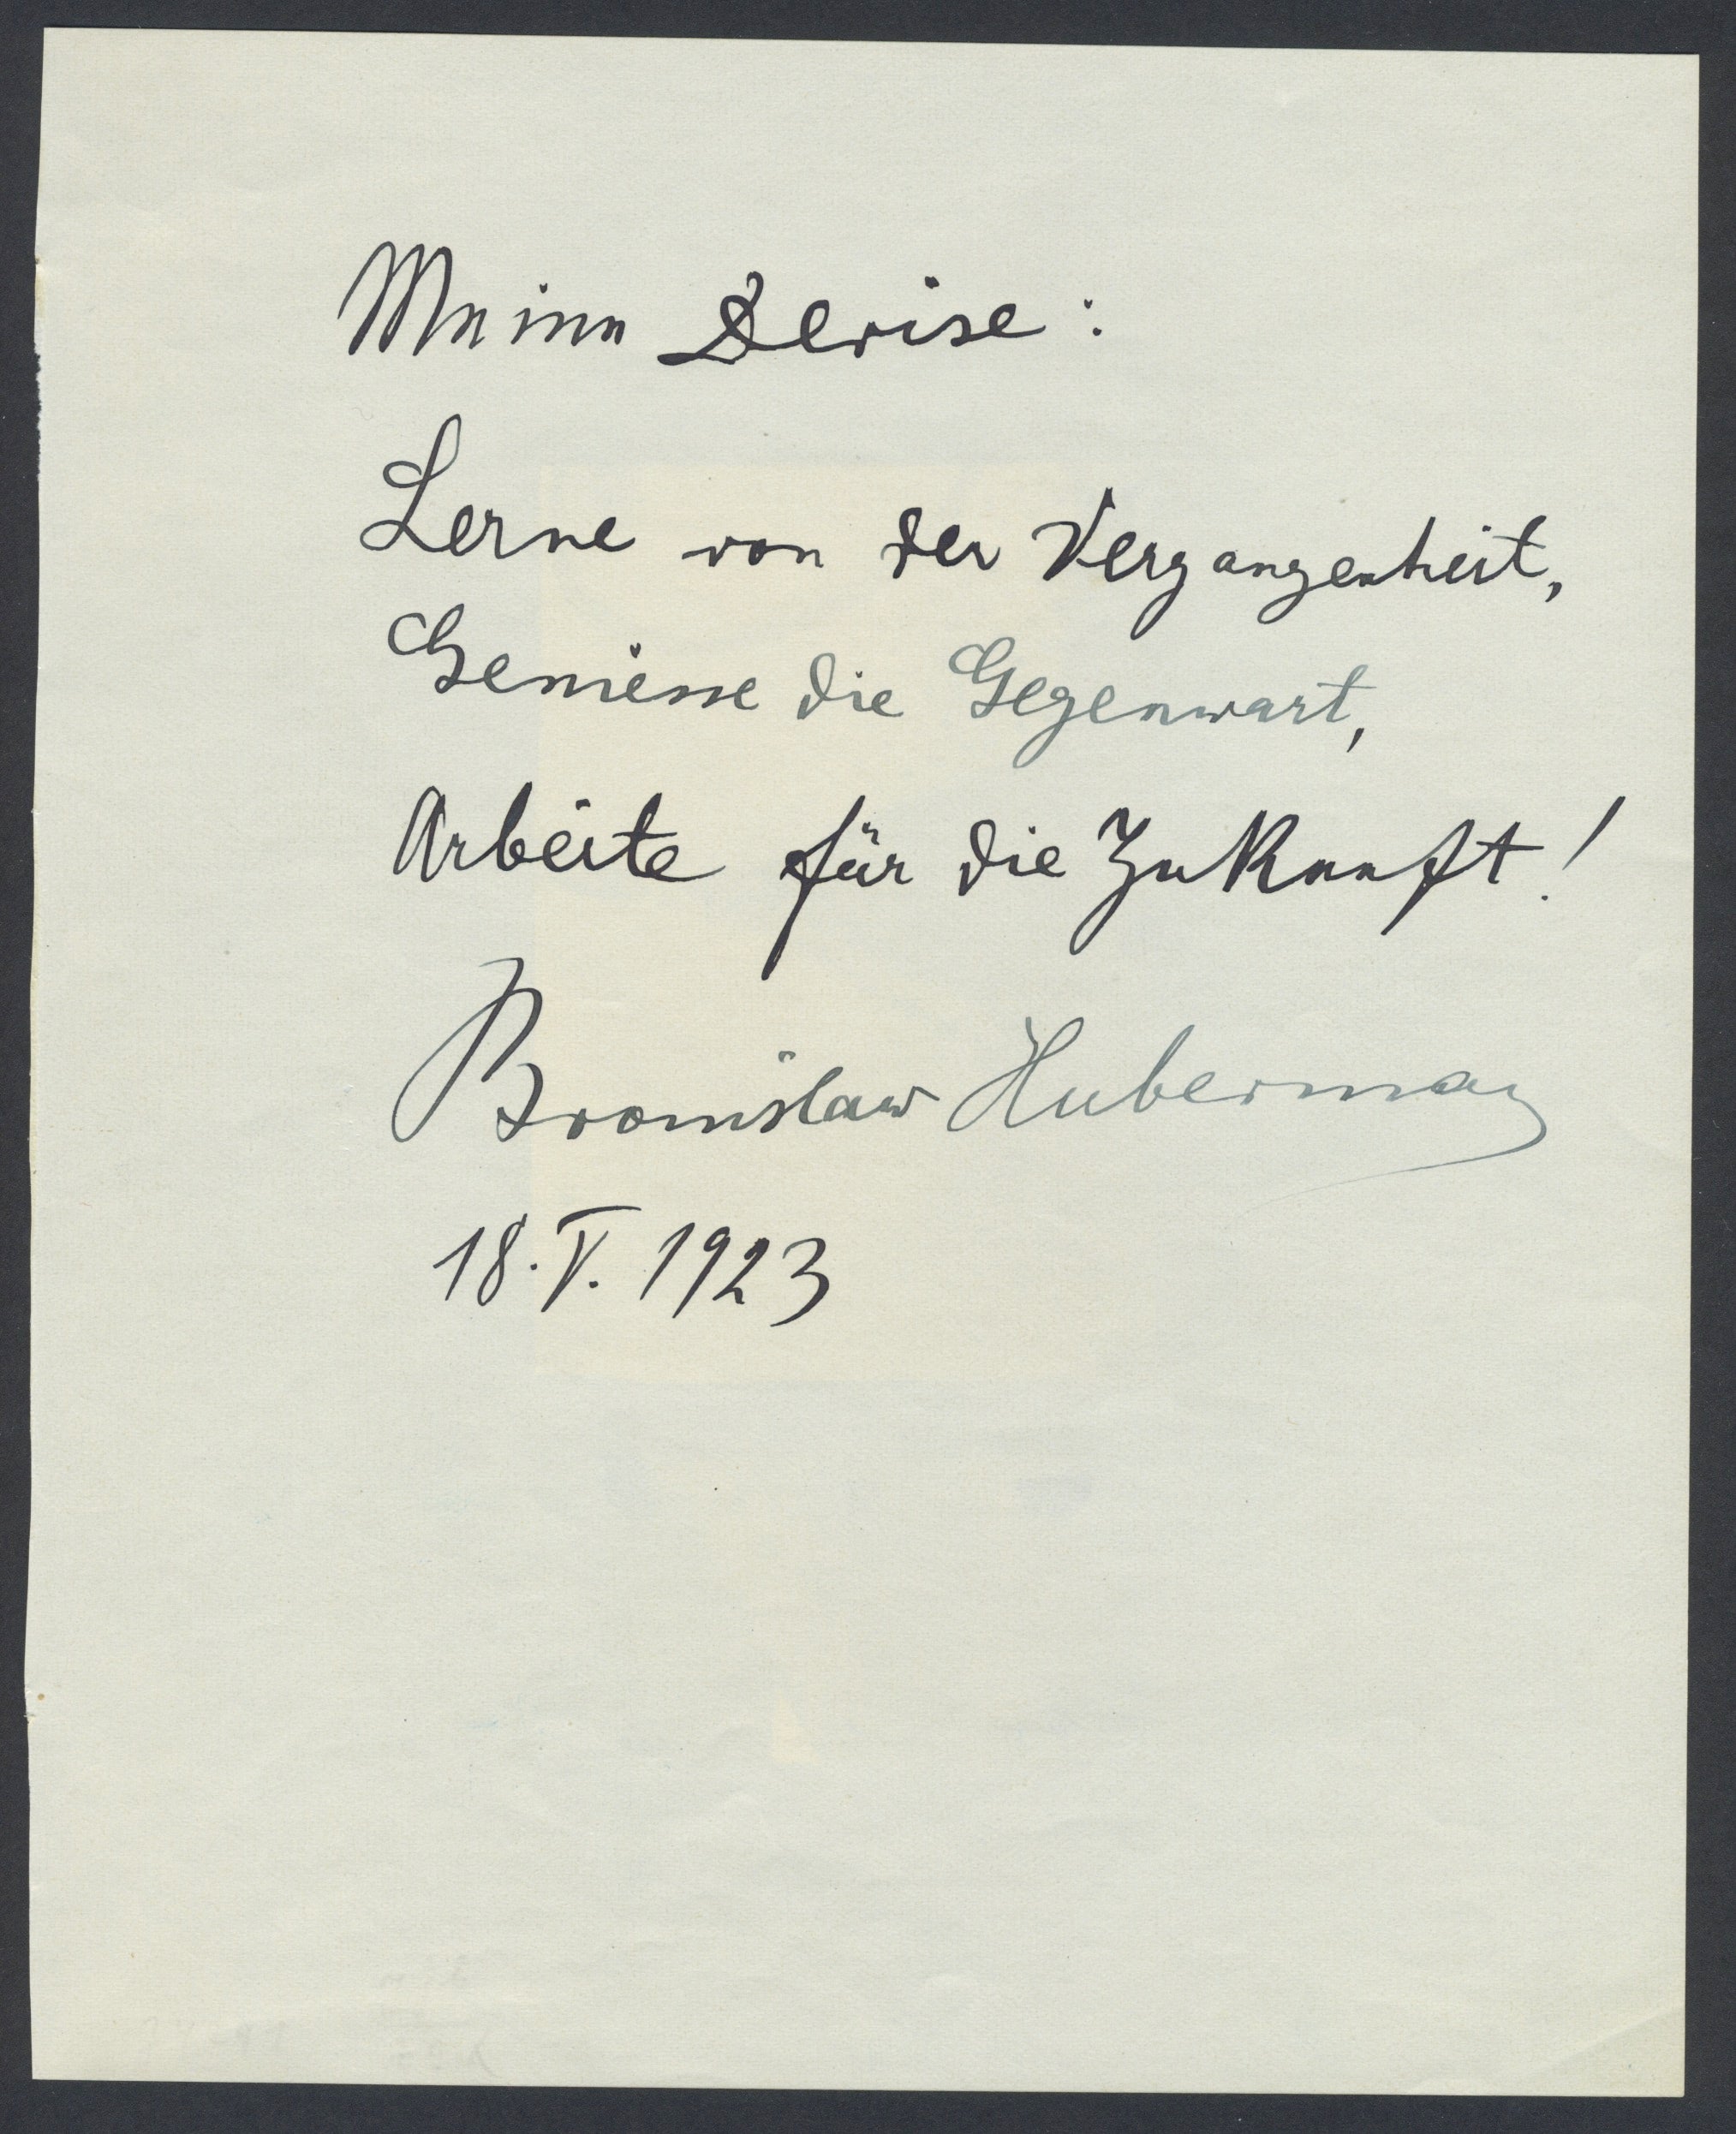 Meine Devise:
Lerne von der Vergangenheit,
Geniesse die Gegenwart,
Arbeite für die Zukunft!
Bronislaw Huberman
18. V. 1923